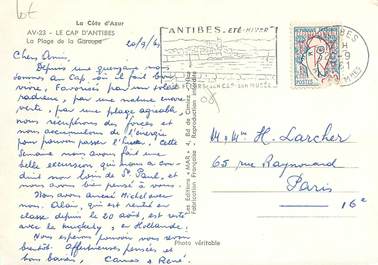 lot
La Côte d'Azur
AV-23 - LE CAP D'ANTIBES
La Plage de la Garoupe
20/9/61
Chers Amis,
Depuis une quinzaine nous
sommes au Cap où il fait bon
vivre, favorisés par un soleil
radieux, par une nature encore
verte, par une plage agréable,
nous récupérons des forces et
nous accumulons de l'énergie
pour pouvoir passer l'hiver, cette
semaine nous avons fait une
belle excursion qui nous a con-
duit non loin de St. Paul, et nous
avons bien pensé à vous.
Nous avons aussi Michel avec
nous. Alain, qui est rentré en
classe depuis le 20 août, est resté
avec le, en Hollande.
Nous espérons pouvoir vous revoir
bientôt. Affectueuses pensées et
bons baisers, René.
Les Editions "MAR" 4, Bd de Cimiez - Nice
Fabrication Française - Reproduction interdite
Photo véritable
ANTIBES - ÉTÉ-HIVER
SON MUSÉE
ANTIBES
08
M. & Mme H. Larcher
65 rue Raynouard
Paris
16e